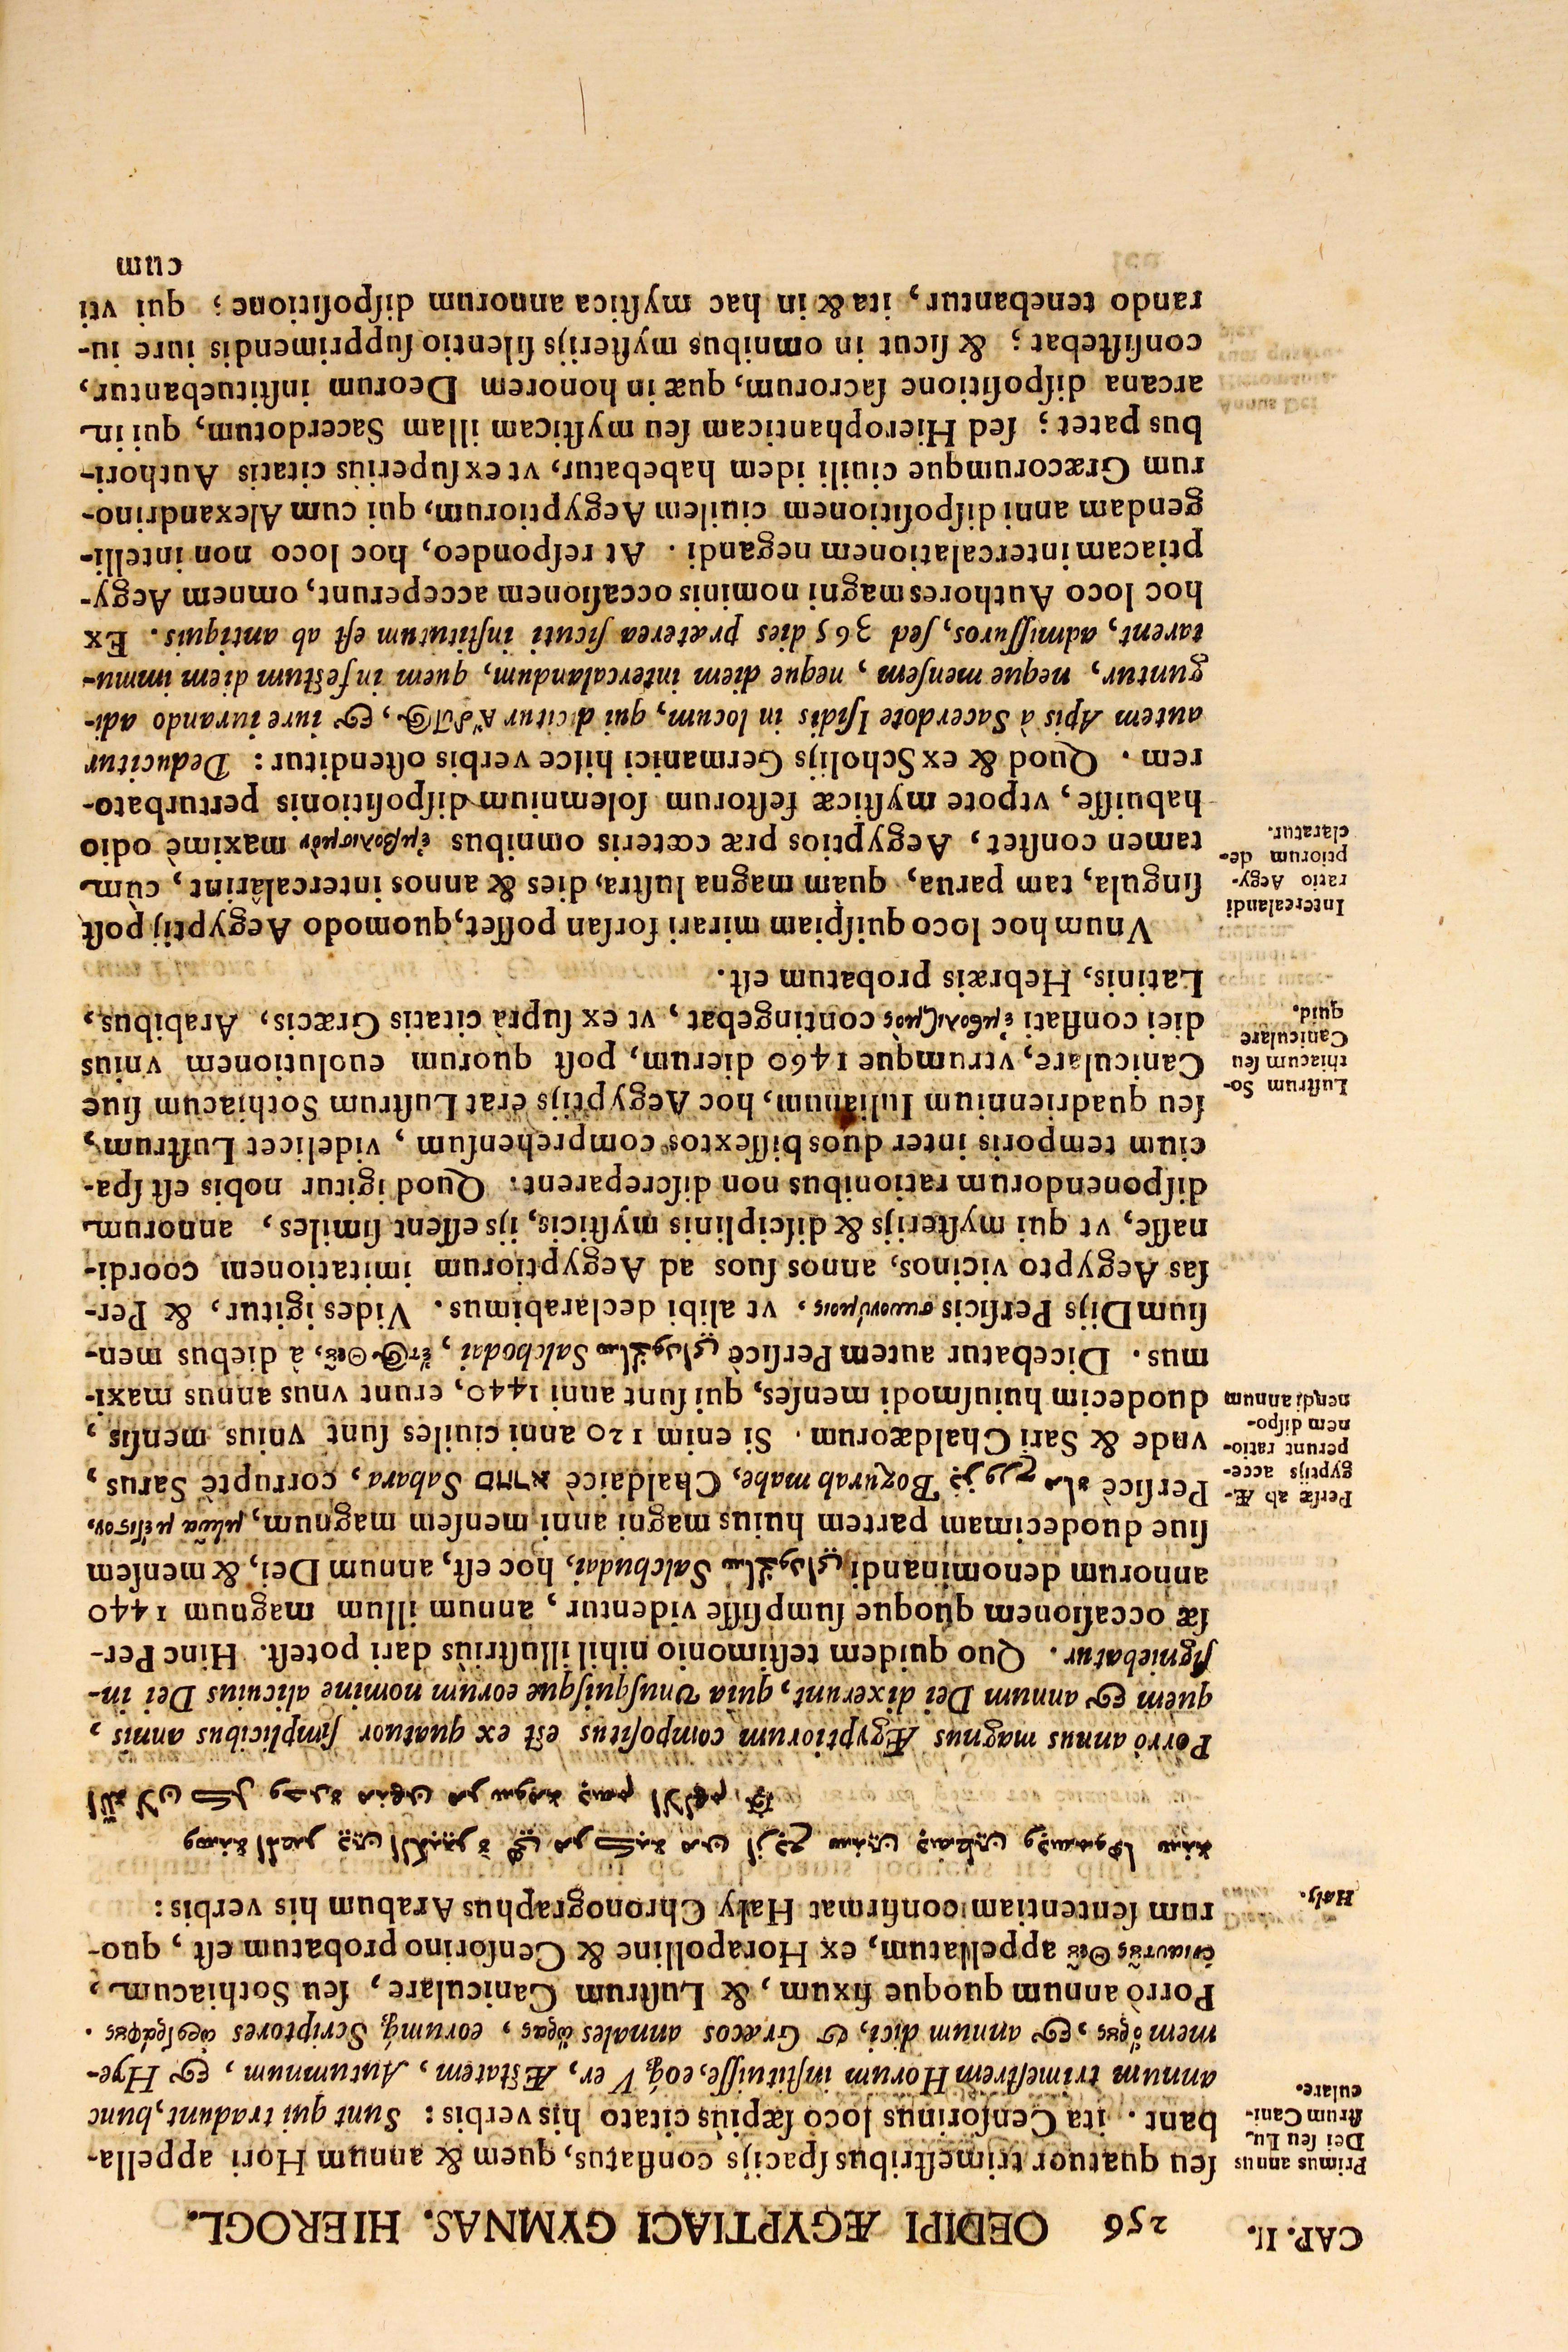 CAP. II. 256 OEDIPI ÆGYPTIACI GYMNAS. HIEROGL.
Primus annus
Dei ſeu Lu-
ſtrum Cani-
culare.
ſeu quatuor trimeſtribus ſpacijs conflatus, quem & annum Hori appella-
bant. ita Cenſorinus loco ſæpiùs citato his verbis: Sunt qui tradunt, hunc
annum trimeſtrem Horum inſtituiſſe, eoq́ Ver, Æſtatem, Autumnum, & Hye-
mem ὥρας, & annum dici, & Græcos annales ὥρας, eorumq́; Scriptores ὡρογράφους.
Porrò annum quoque fixum, & Luſtrum Caniculare, ſeu Sothiacum,
ἐνιαυτοῦς Θεοῦ appellatum, ex Horapolline & Cenſorino probatum eſt, quo-
rum ſententiam confirmat Haly Chronographus Arabum his verbis:
Haly.
Porrò annus magnus Ægyptiorum compoſitus eſt ex quatuor ſimplicibus annis,
quem & annum Dei dixerunt, quia vnuſquiſque eorum nomine alicuius Dei in-
ſigniebatur. Quo quidem teſtimonio nihil illuſtriùs dari poteſt. Hinc Per-
ſæ occaſionem quoque ſumpſiſſe videntur, annum illum magnum 1440
annorum denominandi Salchudai, hoc eſt, annum Dei, & menſem
ſiue duodecimam partem huius magni anni menſem magnum, μῆνα μέγιστον,
Perſicè Bozurab mabe, Chaldaicè Sabara, corruptè Sarus,
vnde & Sari Chaldæorum. Si enim 120 anni ciuiles ſunt vnius menſis,
duodecim huiuſmodi menſes, qui ſunt anni 1440, erunt vnus annus maxi-
mus. Dicebatur autem Perſicè Salchodai, ἔτος Θεοῦ, à diebus men-
ſium Dijs Perſicis συνωνύμοις, vt alibi declarabimus. Vides igitur, & Per-
ſas Aegypto vicinos, annos ſuos ad Aegyptiorum imitationem coordi-
naſſe, vt qui myſterijs & diſciplinis myſticis, ijs eſſent ſimiles, annorum
diſponendorum rationibus non diſcreparent. Quod igitur nobis eſt ſpa-
cium temporis inter duos biſſextos comprehenſum, videlicet Luſtrum,
ſeu quadriennium Iulianum, hoc Aegyptijs erat Luſtrum Sothiacum ſiue
Caniculare, vtrumque 1460 dierum, poſt quorum euolutionem vnius
diei conflati ἐμβολισμος contingebat, vt ex ſuprà citatis Græcis, Arabibus,
Latinis, Hebræis probatum eſt.
Perſæ ab Æ-
gyptijs acce-
perunt ratio-
nem diſpo-
nendi annum
Luſtrum So-
thiacum ſeu
Caniculare
quid.
Vnum hoc loco quiſpiam mirari forſan poſſet, quomodo Aegyptij poſt
ſingula, tam parua, quam magna luſtra, dies & annos intercalârint, cùm
tamen conſtet, Aegyptios præ cœteris omnibus ἐμβολισμὸν maximè odio
habuiſſe, vtpote myſticæ feſtorum ſolemnium diſpoſitionis perturbato-
rem. Quod & ex Scholijs Germanici hiſce verbis oſtenditur: Deducitur
autem Apis à Sacerdote Iſidis in locum, qui dicitur ἄδυτος, & iure iurando adi-
guntur, neque menſem, neque diem intercalandum, quem in feſtum diem immu-
tarent, admiſſuros, ſed 365 dies præterea ſicuti inſtitutum eſt ab antiquis. Ex
hoc loco Authores magni nominis occaſionem acceperunt, omnem Aegy-
ptiacam intercalationem negandi. At reſpondeo, hoc loco non intelli-
gendam anni diſpoſitionem ciuilem Aegyptiorum, qui cum Alexandrino-
rum Græcorumque ciuili idem habebatur, vt ex ſuperiùs citatis Authori-
bus patet; ſed Hierophanticam ſeu myſticam illam Sacerdotum, qui in
arcana diſpoſitione ſacrorum, quæ in honorem Deorum inſtituebantur,
conſiſtebat; & ſicut in omnibus myſterijs ſilentio ſupprimendis iure iu-
rando tenebantur, ita & in hac myſtica annorum diſpoſitione; qui vti
Intercalandi
ratio Aegy-
ptiorum de-
claratur.
cum